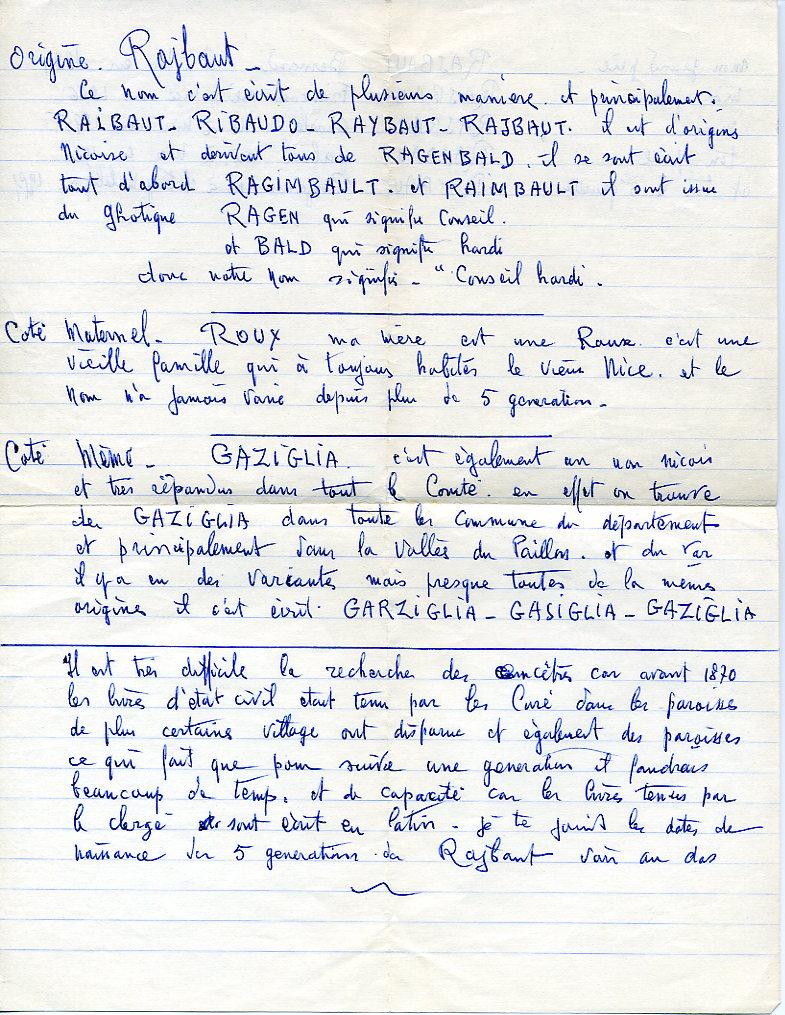 origine. Rajbaut _
Ce nom c'est écrit de plusieurs manière. et principalement.
RAIBAUT - RIBAUDO - RAYBAUT - RAJBAUT. il est d'origine
Nicoise et derivent tous de RAGENBALD. il se sont écrit
tout d'abord RAGIMBAULT. et RAIMBAULT il sont issue
du Ghotique RAGEN qui signifie Conseil.
et BALD qui signifie hardi
donc notre nom signifie - "Conseil hardi.
Coté Maternel - ROUX ma mère est une Roux. c'est une
vieille famille qui à toujours habités le vieux Nice. et le
Nom n'a jamais varié depuis plus de 5 generation -
Coté Mémé - GAZIGLIA. c'est également un nom nicois
et tres répandus dans tout le Comté. en effet on trouve
des GAZIGLIA dans toute les Commune du département
et principalement dans la Vallés du Paillon. et du Var
il y a eu des variantes mais presque toutes de la mêmes
origines il c'est écrit. GARZIGLIA - GASIGLIA - GAZIGLIA
Il est très difficile la recherches des ancêtres car avant 1870
les livres d'état civil etait tenu par les Curé dans les paroisses
de plus certains village ont disparue et également des paroisses
ce qui fait que pour suivre une generation il faudrais
beaucoup de temp. et de capacité car les livres tenus par
le clergé sont écrit en latin - je te joint les dates de
naissance des 5 generations de Rajbaut voir au dos